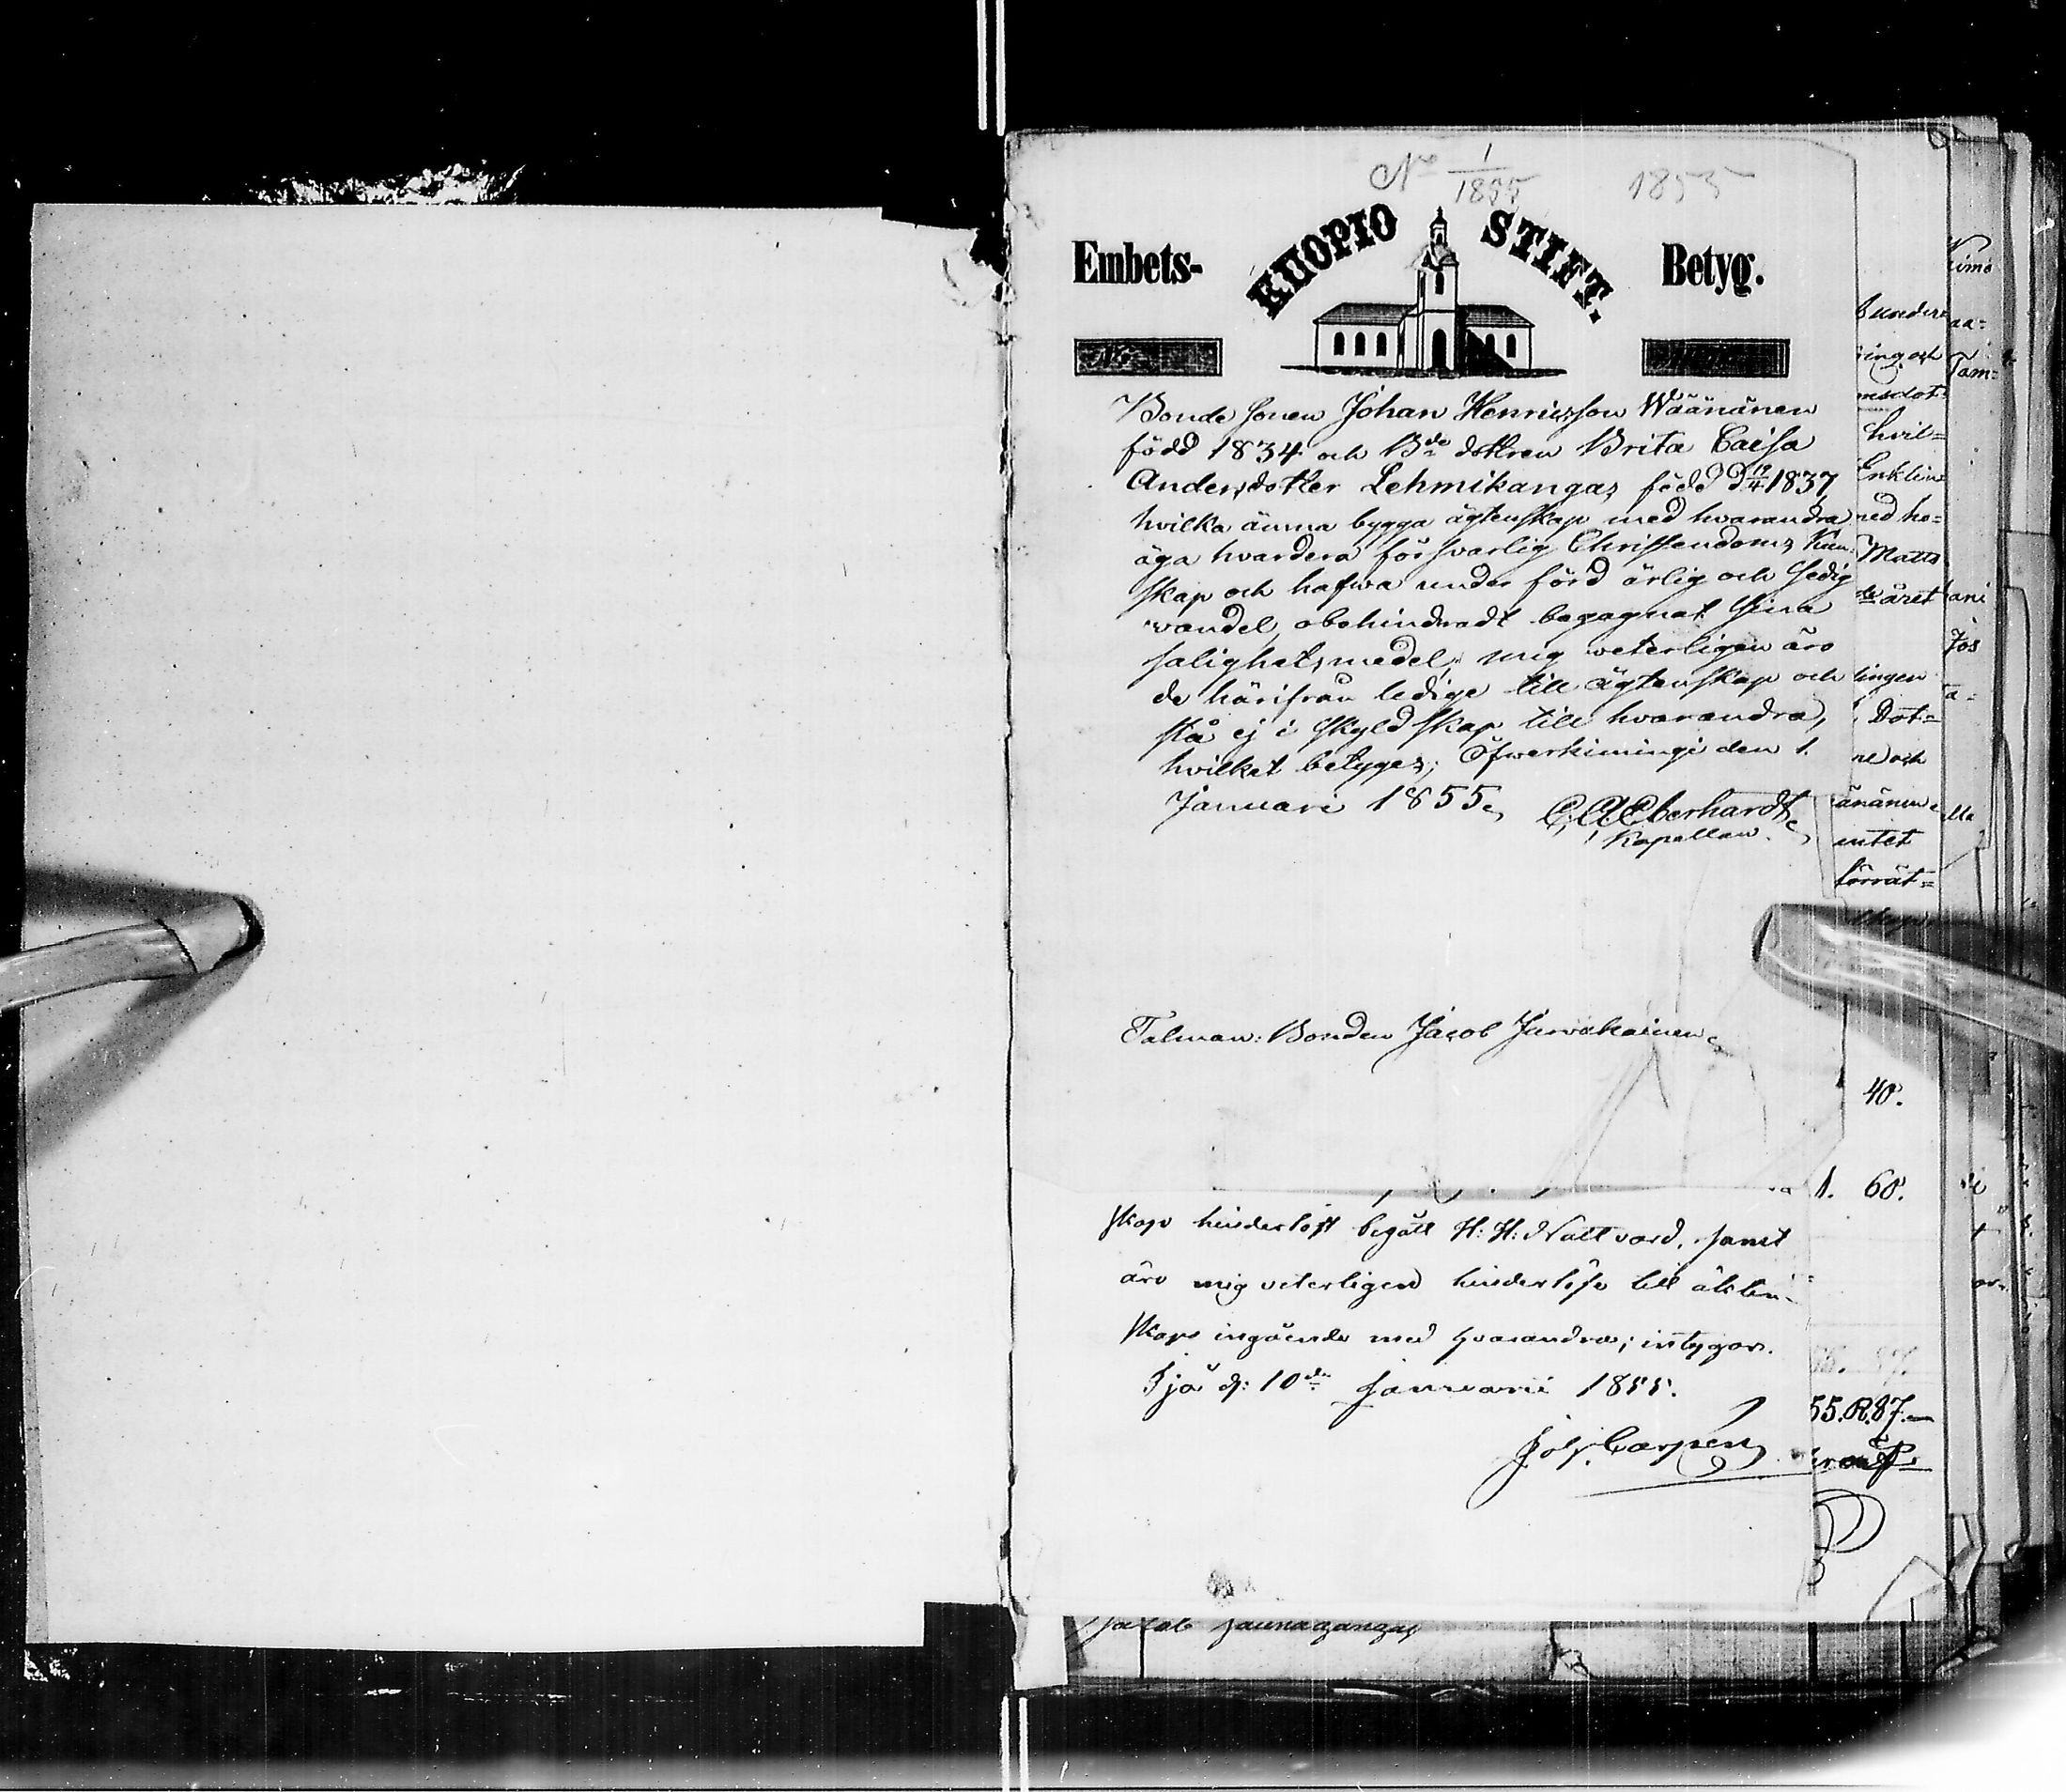 No 1/1855 1855
Embets- KUOPIO STIFT. Betyg.
Bonde sonen Johan Henricsson Wäänänen
född 1834 och Bde dottren Brita Caisa
Andersdotter Lehmikangas född d 19/4 1837,
hvilka ämna bygga ägtenskap med hvarandra
äga hvardera försvarlig Christendoms Kun-
skap och hafwa under förd ärlig och sedig
vandel, obehindradt begagnat sina
salighetsmedel; mig veterligen äro
de härifrån ledige till ägtenskap och
stå ej i skyldskap till hvarandra,
hvilket betygas; Öfwerkiminge den 1.
Januari 1855.
C. A. Eberhardt,
Kapellan.
Talman: Bonden Jacob Jurvakainen
skap hinderlöst begått H: H: Nattvard, samt
äro mig veterligen hinderlöse till äkten-
skaps ingående med hvarandra; intygar.
Ijå d: 10de Januarii 1855.
Joh. Carpen
Jacob Jaunagangas
hvil=
Enklin
ned ho=
Matts
året
lingen
Dot=
och
änänen
intet
förrät=
40.
1. 60.
55. R. 87.—
Kimo
aa=
Tam=
ani
Jos
a=